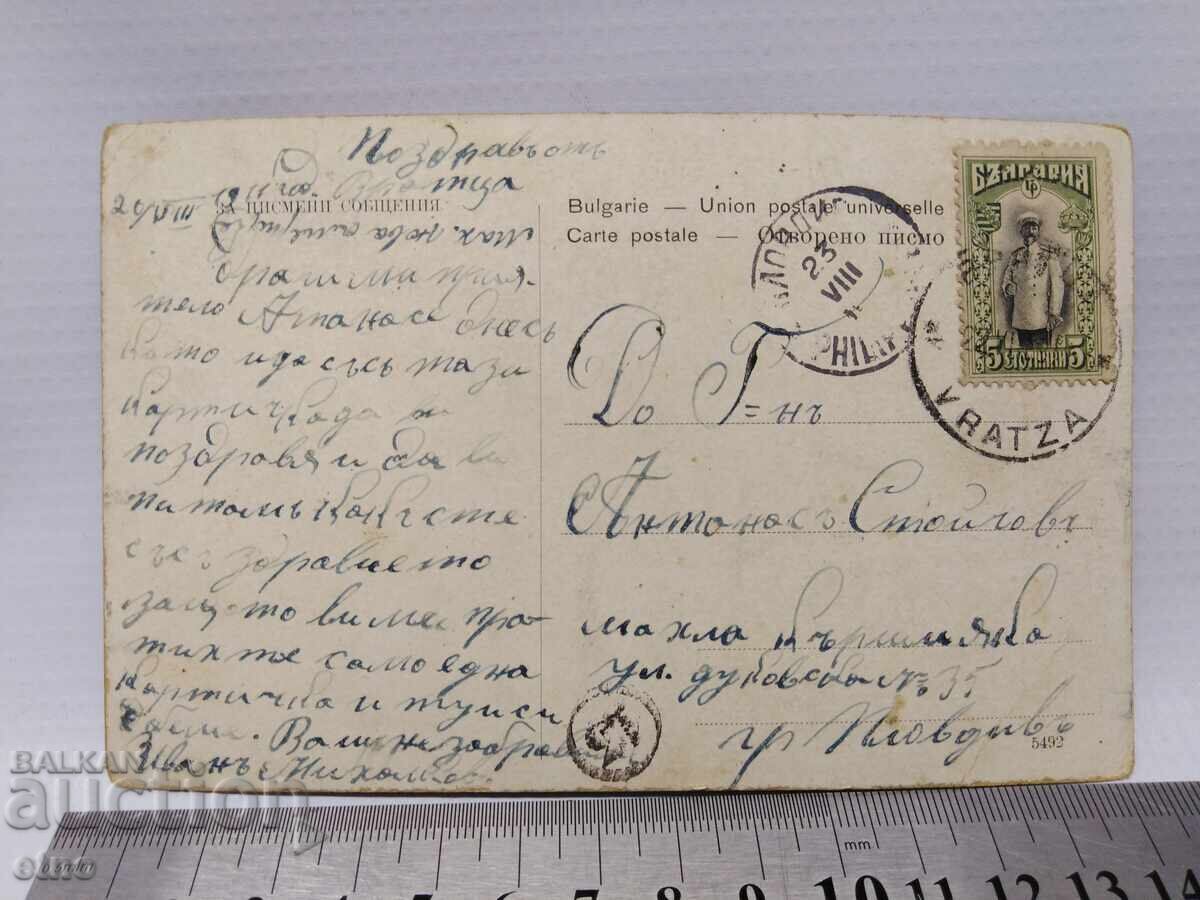 Поздравъ отъ
гр. Вратца
ЗА ПИСМЕНИ СОБЩЕНИЯ
26/VIII
Мах. нова
Драги ми прия-
телю Атанасе днесъ
като ида съсъ тази
картичка да ви
поздравя и да ви
питамъ какъ сте
съсъ здравието
защото ви ме пра-
тихте само една
картичка и туй си
бѣше. Вашъ незабрави
Иванъ
Bulgarie — Union postale universelle
Carte postale — Отворено писмо
БЪЛГАРИЯ
5 СТОТИНКИ 5
ПЛОВДИВ
23
VIII
PHILIP
VRATZA
До Г=нъ
Антонасъ Стойчовъ
махла Кършияка
ул. дуковска № 35
гр Пловдивъ
5492
BALKAN
auction
etno
mm
7 8 9 10 11 12 13 14